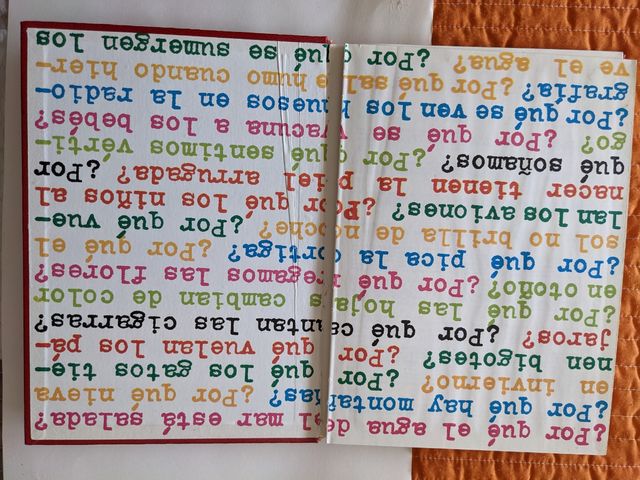 ¿Por qué el agua del mar está salada?
¿Por qué hay montañas? ¿Por qué nieva
en invierno? ¿Por qué los gatos tie-
nen bigotes? ¿Por qué vuelan los pá-
jaros? ¿Por qué cantan las cigarras?
¿Por qué las hojas cambian de color
en otoño? ¿Por qué regamos las flores?
¿Por qué pica la ortiga? ¿Por qué el
sol no brilla de noche? ¿Por qué vue-
lan los aviones? ¿Por qué los niños al
nacer tienen la piel arrugada? ¿Por
qué soñamos? ¿Por qué sentimos vérti-
go? ¿Por qué se vacuna a los bebés?
¿Por qué se ven los huesos en la radio-
grafía? ¿Por qué sale humo cuando hier-
ve el agua? ¿Por qué se sumergen los